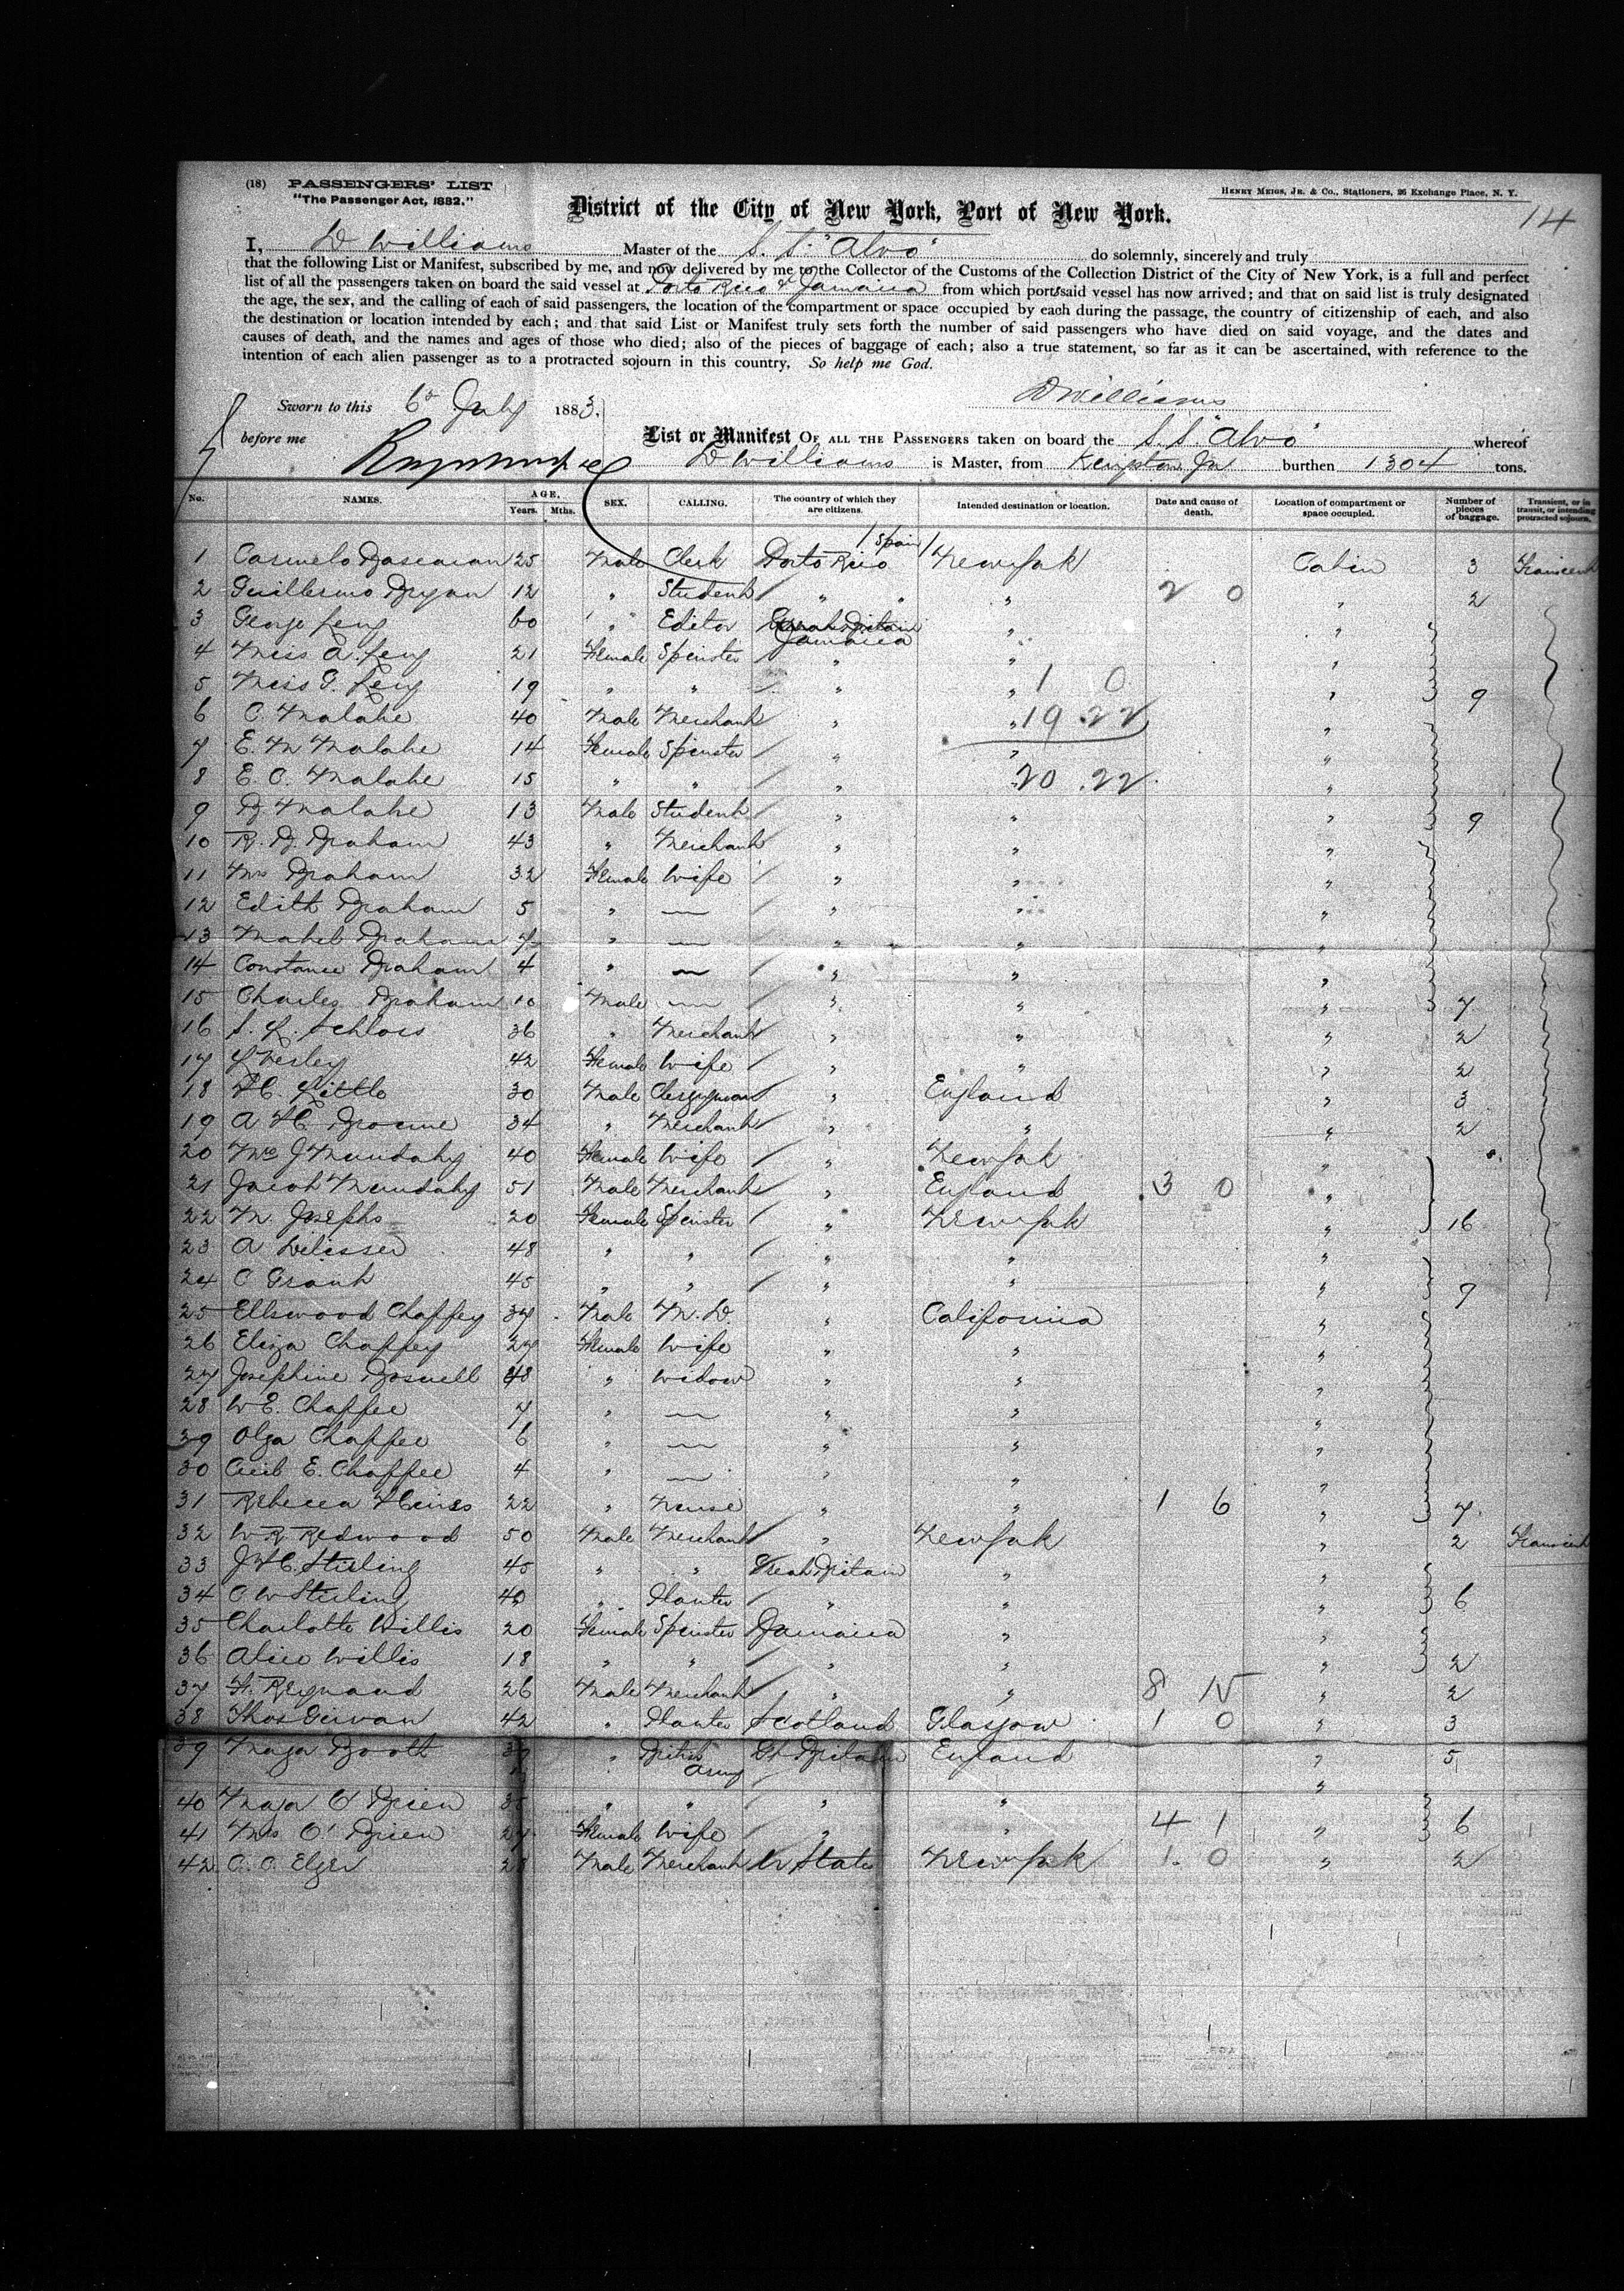 (18) PASSENGERS' LIST
"The Passenger Act, 1882."
HENRY MEIGS, JR. & CO., Stationers, 26 Exchange Place, N. Y.
14
District of the City of New York, Port of New York.
I, D Williams Master of the S. S. "Alvo" do solemnly, sincerely and truly
that the following List or Manifest, subscribed by me, and now delivered by me to the Collector of the Customs of the Collection District of the City of New York, is a full and perfect
list of all the passengers taken on board the said vessel at Porto Rico & Jamaica from which ports said vessel has now arrived; and that on said list is truly designated
the age, the sex, and the calling of each of said passengers, the location of the compartment or space occupied by each during the passage, the country of citizenship of each, and also
the destination or location intended by each; and that said List or Manifest truly sets forth the number of said passengers who have died on said voyage, and the dates and
causes of death, and the names and ages of those who died; also of the pieces of baggage of each; also a true statement, so far as it can be ascertained, with reference to the
intention of each alien passenger as to a protracted sojourn in this country. So help me God.
D Williams
Sworn to this 6th July 1883.
before me
List or Manifest OF ALL THE PASSENGERS taken on board the S. S. "Alvo" whereof
D Williams is Master, from Kingston Ja burthen 1304 tons.
No. NAMES. AGE. Years. Mths. SEX. CALLING. The country of which they are citizens. Intended destination or location. Date and cause of death. Location of compartment or space occupied. Number of pieces of baggage. Transient, or in transit, or intending protracted sojourn.
/ Spain /
1 Carmelo 25 Male Clerk Porto Rico New York Cabin 3 Transient
2 Guillermo 12 " Student " " " 2 0 " 2
3 George Levy 60 " Editor Jamaica " "
4 Miss A. Levy 21 Female Spinster " " "
5 Miss G. Levy 19 " " " " 1 0 " 9
6 C. Malabre 40 Male Merchant " " 19 22 "
7 E. M Malabre 14 Female Spinster " " "
8 E. C. Malabre 15 " " " 20 22 "
9 Malabre 13 Male Student " " " 9
10 Braham 43 " Merchant " " "
11 Mrs Braham 32 Female Wife " " "
12 Edith Braham 5 " — " " "
13 Mabel Braham 7 " — " " "
14 Constance Braham 4 " — " " "
15 Charles Braham 10 Male — " " " 7
16 S. Schloss 36 " Merchant " " " 2
17 42 Female Wife " " " 2
18 Kittle 30 Male Clergyman " England " 3
19 34 " Merchant " " " 2
20 Mrs J 40 Female Wife " New York "
21 Jacob 51 Male Merchant " England 3 0 "
22 M. Josephs 20 Female Spinster " New York " 16
23 A Delisser 48 " " " " "
24 C Grant 45 " " " " " 9
25 Ellswood Chaffey 37 Male M. D. " California "
26 Eliza Chaffey 27 Female Wife " " "
27 Josephine 48 " Widow " " "
28 W E. Chaffee 7 " — " " "
29 Olga Chaffee 6 " — " " "
30 Cecil E. Chaffee 4 " — " " "
31 Rebecca 22 " Nurse " " 1 6 " 7
32 W R Redwood 50 Male Merchant " New York " 2 Transient
33 Stirling 45 " " Great Britain " "
34 C W Stirling 40 " Planter " " " 6
35 Charlotte Willis 20 Female Spinster Jamaica " "
36 Alice Willis 18 " " " " " 2
37 26 Male Merchant " " 8 15 " 2
38 Thos Girvan 42 " Planter Scotland Glasgow 1 0 " 3
39 Major Booth " British Army Gt Britain England " 5
40 Major O'Brien " " " " "
41 Mrs O'Brien 27 Female Wife " " 4 1 " 6
42 28 Male Merchant U States New York 1 0 " 2